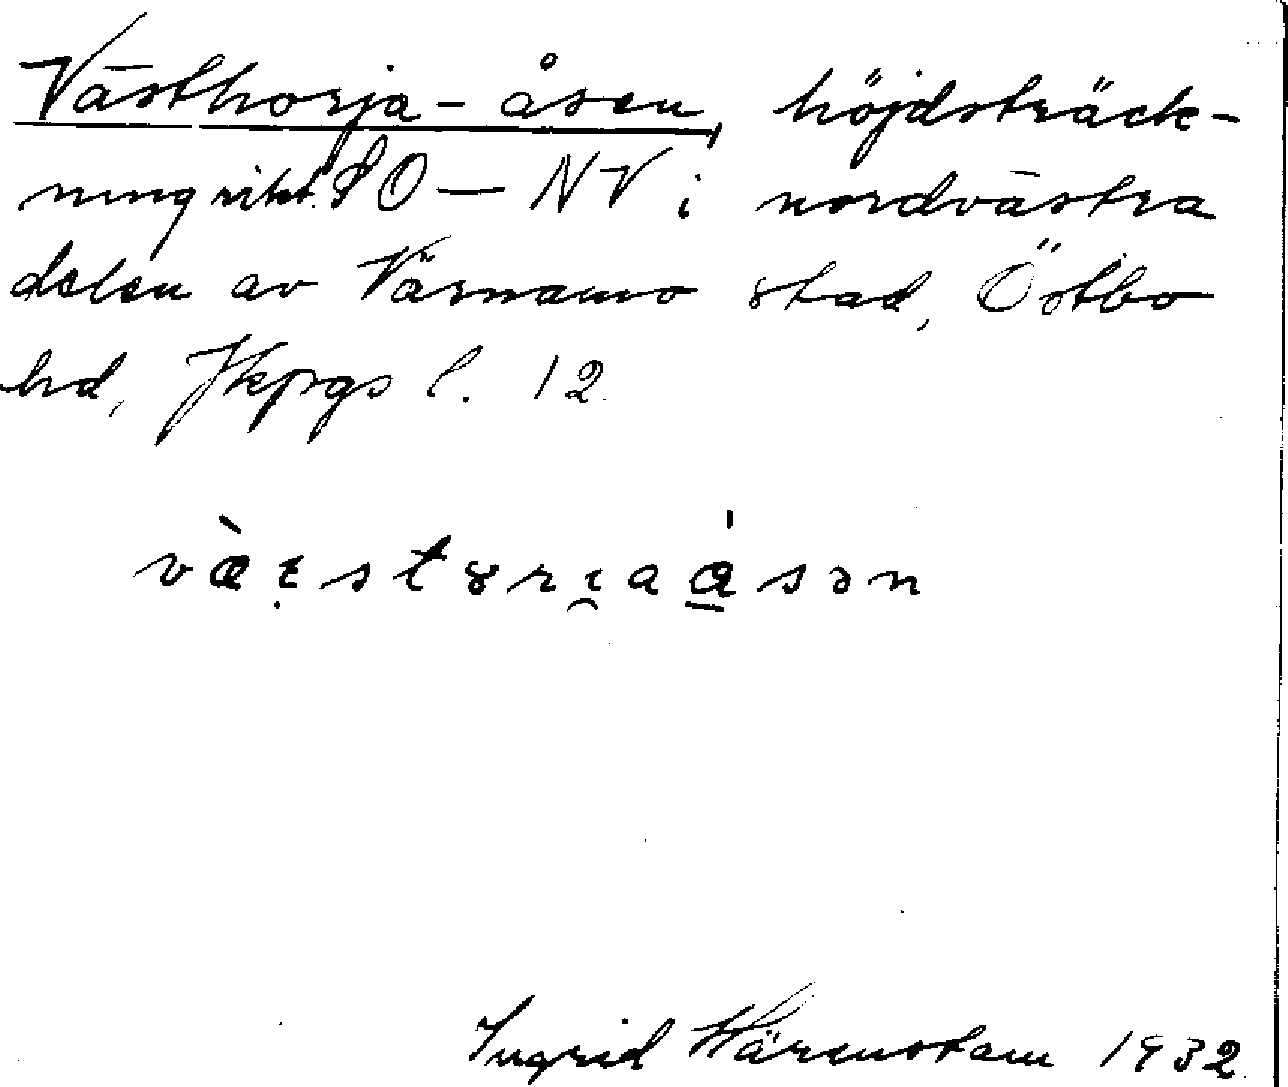 Västhorja-åsen, höjdsträck-
ning rikt. SO — NV i nordvästra
delen av Värnamo stad, Östbo
hd, Jkpgs l. 12.
Ingrid Wärenstam 1932